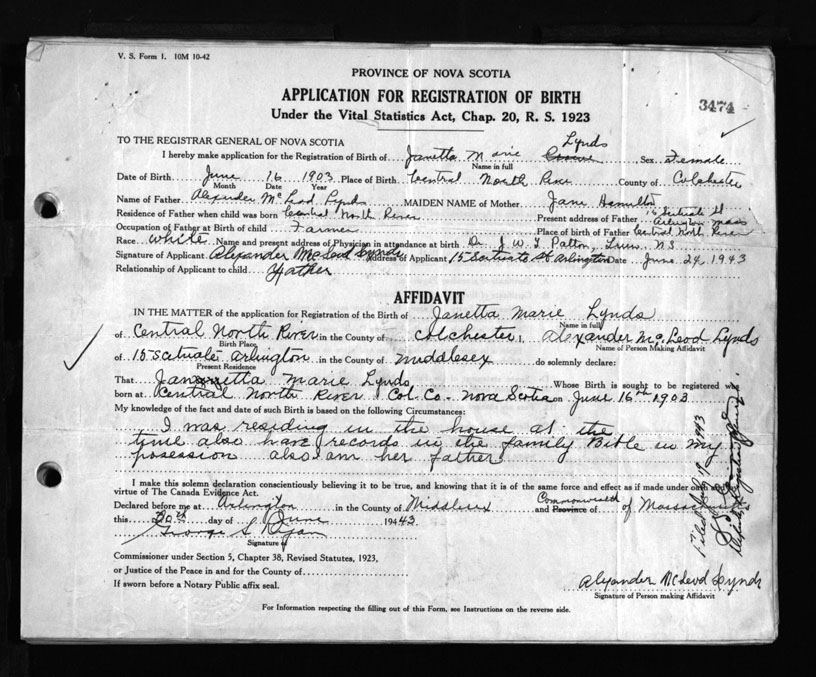 V. S. Form 1. 10M 10-42
PROVINCE OF NOVA SCOTIA
APPLICATION FOR REGISTRATION OF BIRTH
3474
Under the Vital Statistics Act, Chap. 20, R. S. 1923
TO THE REGISTRAR GENERAL OF NOVA SCOTIA
Lynds
I hereby make application for the Registration of Birth of Janetta Marie Sex Female
Name in full
Date of Birth June 16 1903 Place of Birth Central North River County of Colchester
Month Date Year
Name of Father Alexander McLeod Lynds MAIDEN NAME of Mother Jane Hamilton
Residence of Father when child was born Central North River Present address of Father Arlington Mass
Occupation of Father at Birth of Child Farmer Place of birth of Father Central North River
Race White Name and present address of Physician in attendance at birth Dr J. W. T Patton, Truro N.S
Signature of Applicant Alexander McLeod Lynds Address of Applicant 15 Scituate St Arlington Date June 24, 1943
Relationship of Applicant to child Father
AFFIDAVIT
IN THE MATTER of the application for Registration of the Birth of Janetta Marie Lynds
Name in full
of Central North River in the County of Colchester I, Alexander McLeod Lynds
Birth Place Name of Person Making Affidavit
of 15 Scituate Arlington in the County of Middlesex do solemnly declare:
Present Residence
That Janetta Marie Lynds Whose Birth is sought to be registered was
born at Central North River Col. Co. Nova Scotia on June 16th 1903
My knowledge of the fact and date of such Birth is based on the following Circumstances:
I was residing in the house at the
time also have records in the family Bible in my
posession also am her father
I make this solemn declaration conscientiously believing it to be true, and knowing that it is of the same force and effect as if made under oath and by
virtue of The Canada Evidence Act.
Commonwealth
Declared before me at Arlington in the County of Middlesex and Province of of Massachusetts
this day of June 194
George
Signature of
Commissioner under Section 5, Chapter 38, Revised Statutes, 1923,
or Justice of the Peace in and for the County of
If sworn before a Notary Public affix seal.
Alexander McLeod Lynds
Signature of Person making Affidavit
For Information respecting the filling out of this Form, see Instructions on the reverse side.